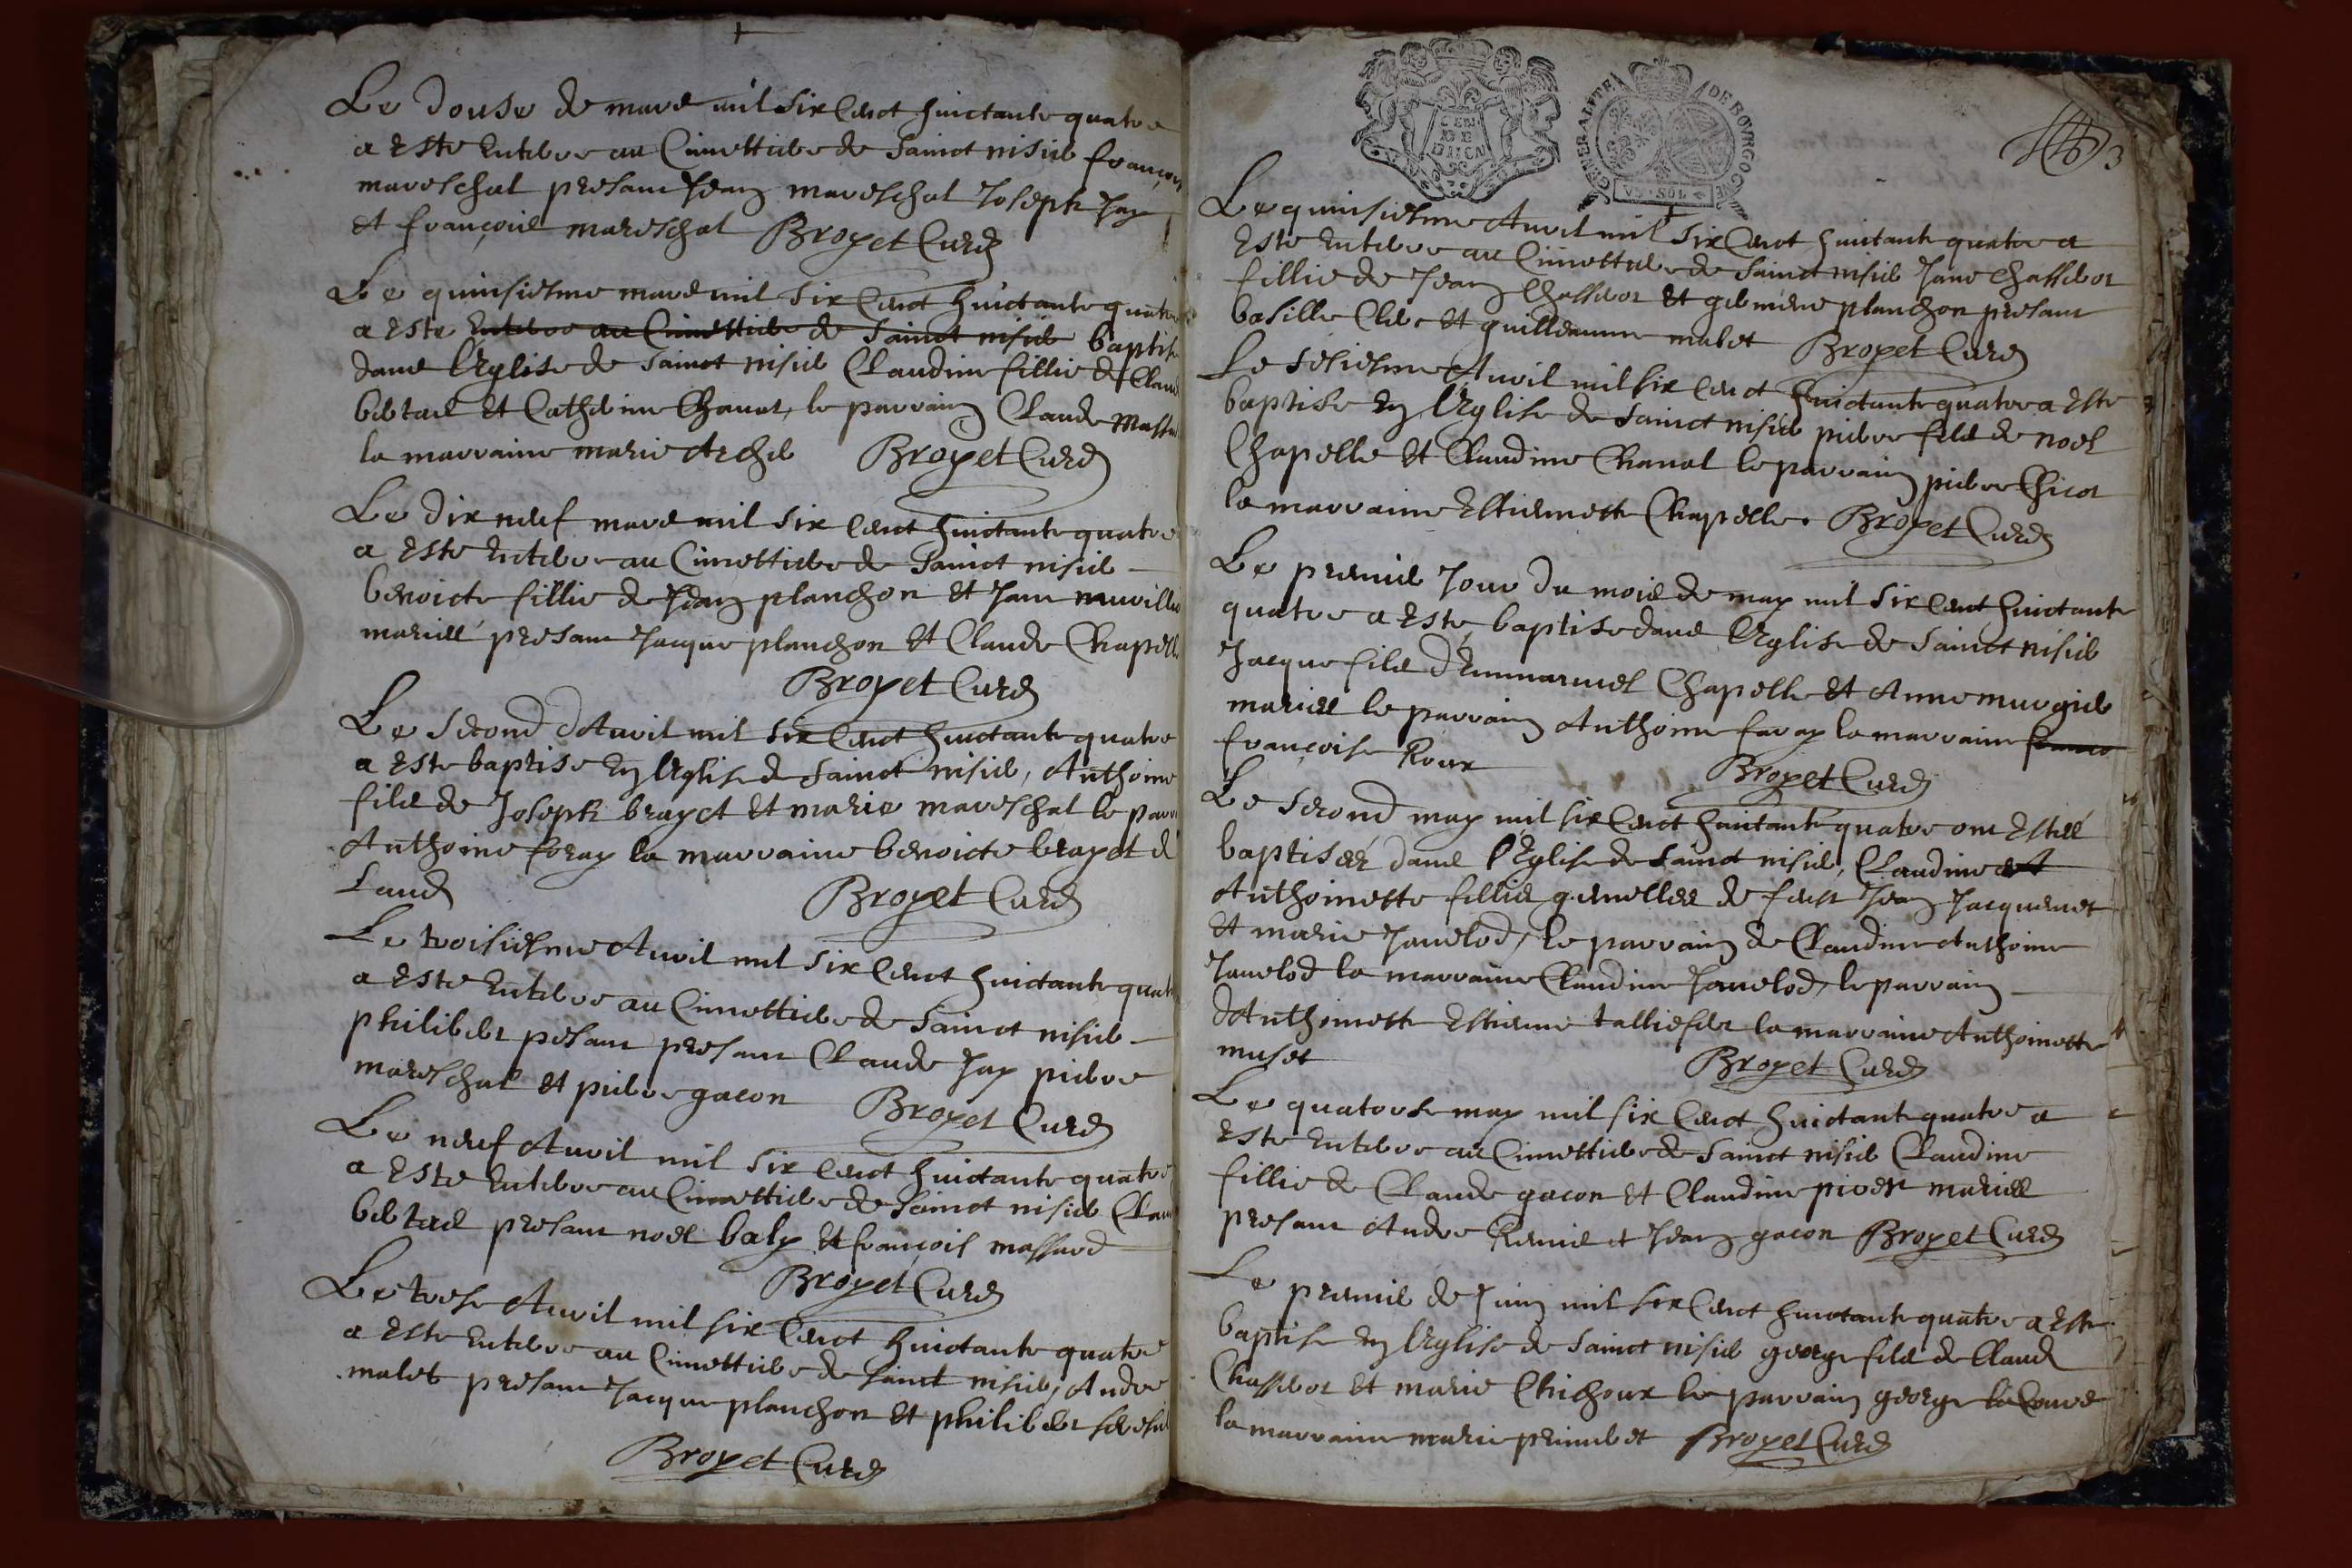 Le douse de mars mil six cent huictante quatre
a este enterre au Cimettiere de Sainct nisier françois
mareschal presant Jean mareschal Joseph Jay
et françois mareschal Broyet Curé
Le quinsiesme mars mil six cent huictante quatre
a este enterre au Cimettiere de Sainct nisier baptise
dans l'Eglise de Sainct nisier Claudine fillie de Claude
bertail et Catherine Chanal, le parrain Claude Massard
la marraine marie Archer Broyet Curé
Le dix neuf mars mil six cent huictante quatre
a este enterre au Cimettiere de Sainct nisier
benoicte fillie de Jean planchon et Jane
mariés presant Jacque planchon et Claude Chapelle
Broyet Curé
Le second d'Avril mil six cent huictante quatre
a este baptise en l'Eglise de Sainct nisier, Anthoine
fils de Joseph brayet et marie mareschal le parrain
Anthoine foray la marraine benoicte brayet d
Laud
Broyet Curé
Le troisiesme Avril mil six cent huictante quatre
a este enterre au Cimettiere de Sainct nisier
philibert pesant presant Claude Jay pierre
mareschal et pierre gacon Broyet Curé
Le neuf Avril mil six cent huictante quatre
a este enterre au Cimettiere de Sainct nisier Claude
bertail presant noel baly et françois massard
Broyet Curé
Le trese Avril mil six cent huictante quatre
a este enterre au Cimettiere de Sainct nisier, Andre
malet presant Jacque planchon et philibert
Broyet Curé
GENERALITE DE BOVRGOGNE
VN SOL
3
Le quinsiesme Avril mil six cent huictante quatre a
este enterre au Cimettiere de Sainct nisier Jane Chassebot
fillie de Jean Chassebot et planchon presant
basille Clerc et guilleaume malet Broyet Curé
Le sesiesme Avril mil six cent huictante quatre a este
baptise en l'Eglise de Sainct nisier pierre fils de noel
Chapelle et Claudine Chanal le parrain pierre Chicot
la marraine Estiennette Chapelle. Broyet Curé
Le premier Jour du mois de may mil six cent huictante
quatre a este baptise dans l'Eglise de Sainct nisier
Jacque fils d'Emmanuel Chapelle et Anne murgier
mariés le parrain Anthoine faray la marraine
françoise Roux Broyet Curé
Le second may mil six cent huictante quatre ont estéé
baptiséés dans l'Eglise de Sainct nisier, Claudine et
Anthoinette fillies gemelles de feust Jean Jacquemet
et marie Janelod, le parrain de Claudine Anthoine
Janelod la marraine Claudine Janelod, le parrain
d'Anthoinette Estienne talliefer la marraine Anthoinette
muset Broyet Curé
Le quatorse may mil six cent huictante quatre a
este enterre au Cimettiere de Sainct nisier Claudine
fillie de Claude gacon et Claudine mariés
presant Andre Renie et Jean gacon Broyet Curé
Le premier de Juin mil six cent huictante quatre a este
baptise en l'Eglise de Sainct nisier george fils de Claude
Chassebot et marie Chichoux le parrain george
la marraine marie Broyet Curé